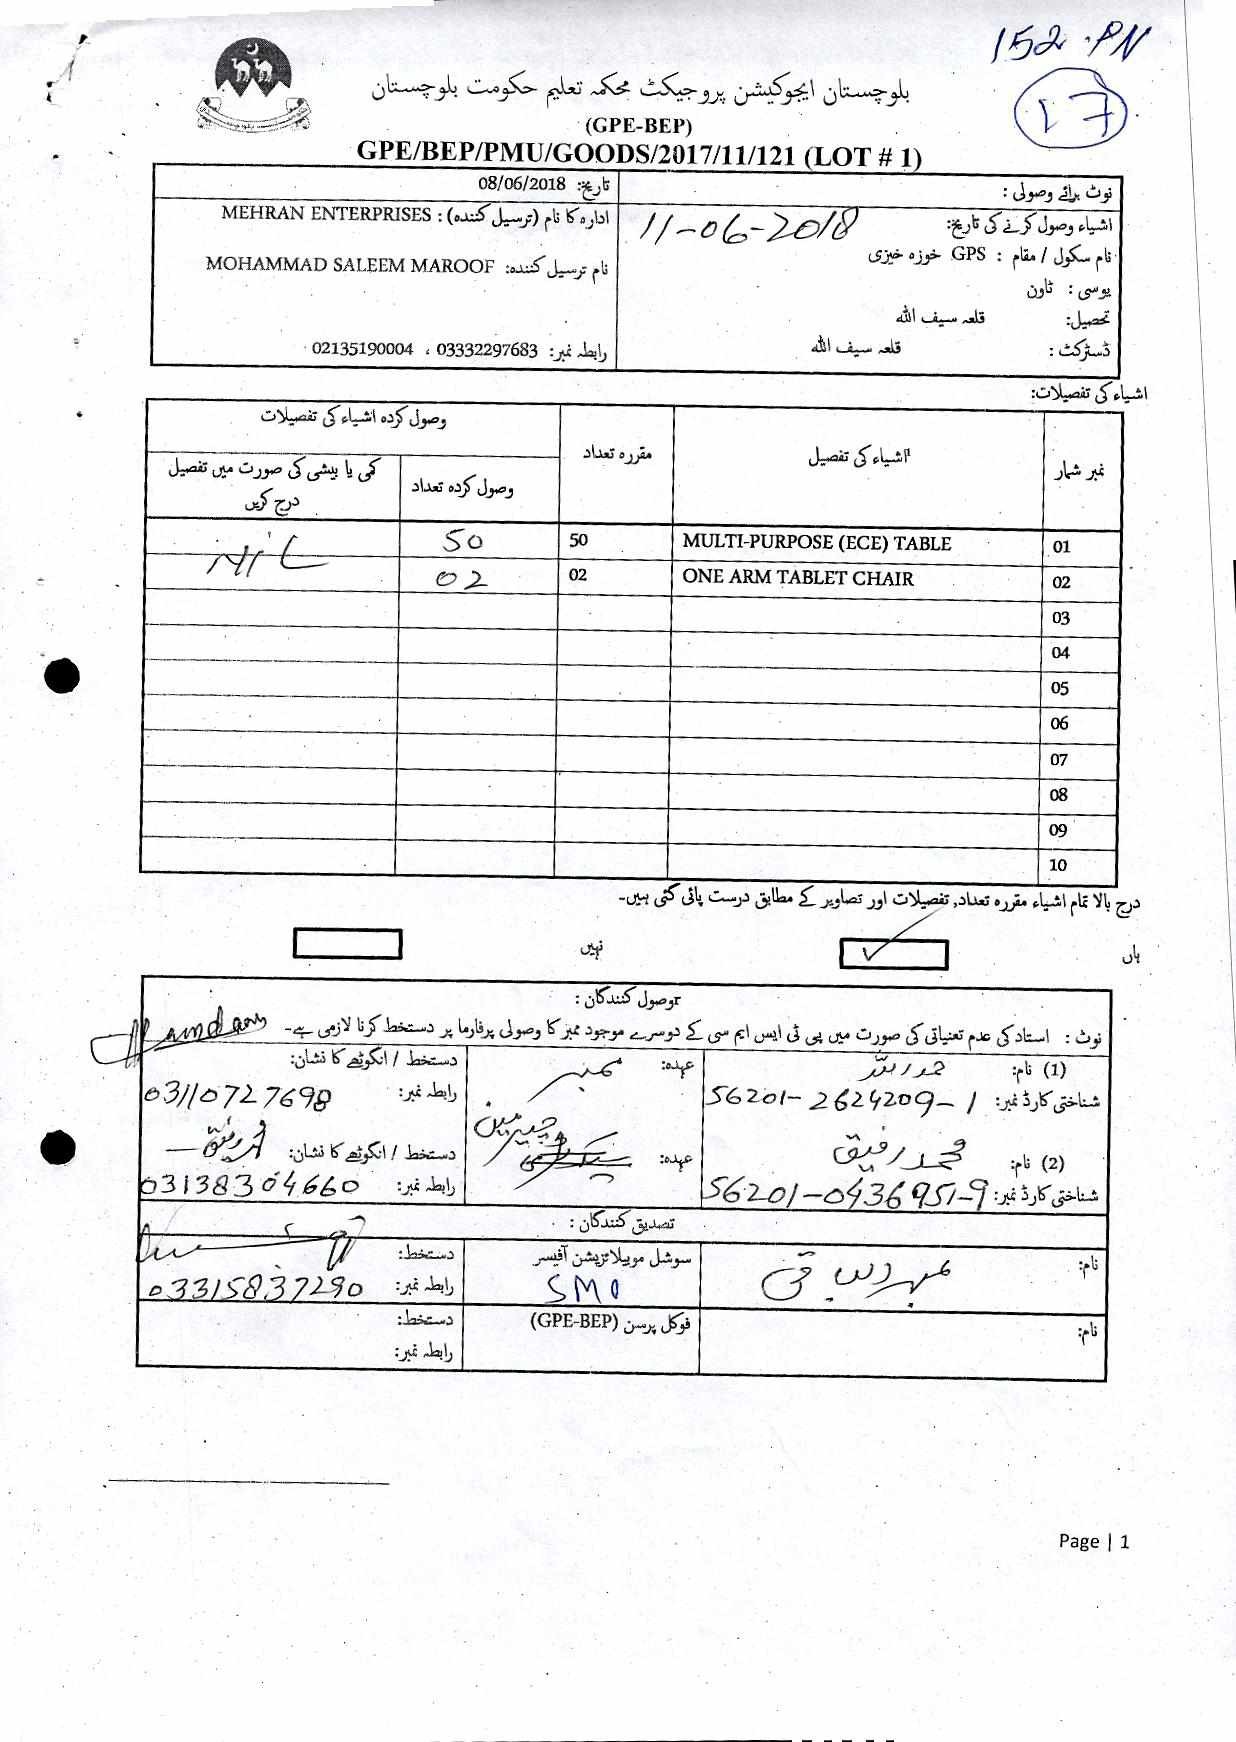 152 PN
17
بلوچستان ایجوکیشن پروجیکٹ محکمہ تعلیم حکومت بلوچستان
(GPE-BEP)
GPE/BEP/PMU/GOODS/2017/11/121 (LOT # 1)
نوٹ برائے وصولی :
تاریخ: 08/06/2018
اشیاء وصول کرنے کی تاریخ: 11-06-2018
ادارہ کا نام (ترسیل کنندہ) : MEHRAN ENTERPRISES
نام سکول / مقام : GPS خوزہ خیزی
نام ترسیل کنندہ: MOHAMMAD SALEEM MAROOF
یوسی : ٹاون
تحصیل: قلعہ سیف اللہ
ڈسٹرکٹ : قلعہ سیف اللہ
رابطہ نمبر: 03332297683 ، 02135190004
اشیاء کی تفصیلات:
نمبر شمار اشیاء کی تفصیل مقررہ تعداد وصول کردہ اشیاء کی تفصیلات
وصول کردہ تعداد کمی یا بیشی کی صورت میں تفصیل درج کریں
01 MULTI-PURPOSE (ECE) TABLE 50 50 NIL
02 ONE ARM TABLET CHAIR 02 02
03
04
05
06
07
08
09
10
درج بالا تمام اشیاء مقررہ تعداد, تفصیلات اور تصاویر کے مطابق درست پائی گئی ہیں-
ہاں ✓ نہیں
وصول کنندگان :
نوٹ : استاد کی عدم تعنیاتی کی صورت میں پی ٹی ایس ایم سی کے دوسرے موجود ممبر کا وصولی پرفارما پر دستخط کرنا لازمی ہے-
(1) نام: عہدہ: ممبر دستخط / انگوٹھے کا نشان:
شناختی کارڈ نمبر: 56201-2624209-1 رابطہ نمبر: 03110727698
(2) نام: محمد رفیق عہدہ: چیرمین دستخط / انگوٹھے کا نشان:
شناختی کارڈ نمبر: 56201-0436951-9 رابطہ نمبر: 03138304660
تصدیق کنندگان :
نام: سوشل موبیلائزیشن آفیسر دستخط:
SMO رابطہ نمبر: 03315837290
نام: فوکل پرسن (GPE-BEP) دستخط:
رابطہ نمبر:
Page | 1